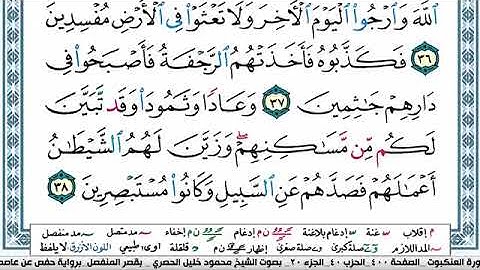 اللَّهَ وَارْجُوا الْيَوْمَ الْآخِرَ وَلَا تَعْثَوْا فِي الْأَرْضِ مُفْسِدِينَ
٣٦ فَكَذَّبُوهُ فَأَخَذَتْهُمُ الرَّجْفَةُ فَأَصْبَحُوا فِي
دَارِهِمْ جَاثِمِينَ ٣٧ وَعَادًا وَثَمُودَا وَقَد تَّبَيَّنَ
لَكُم مِّن مَّسَاكِنِهِمْ ۖ وَزَيَّنَ لَهُمُ الشَّيْطَانُ
أَعْمَالَهُمْ فَصَدَّهُمْ عَنِ السَّبِيلِ وَكَانُوا مُسْتَبْصِرِينَ ٣٨
م إقلاب س غنة س إدغام بلاغنة ن م إدغام ن م إخفاء مد متصل مد منفصل
المد اللازم صلة كبرى صلة صغرى إظهار ن م قلقلة اوى طبيعي اللون الأزرق لا يلفظ
سورة العنكبوت . الصفحة ٤٠٠ الحزب ٤٠ الجزء ٢٠ . بصوت الشيخ محمود خليل الحصري . بقصر المنفصل . برواية حفص عن عاصم